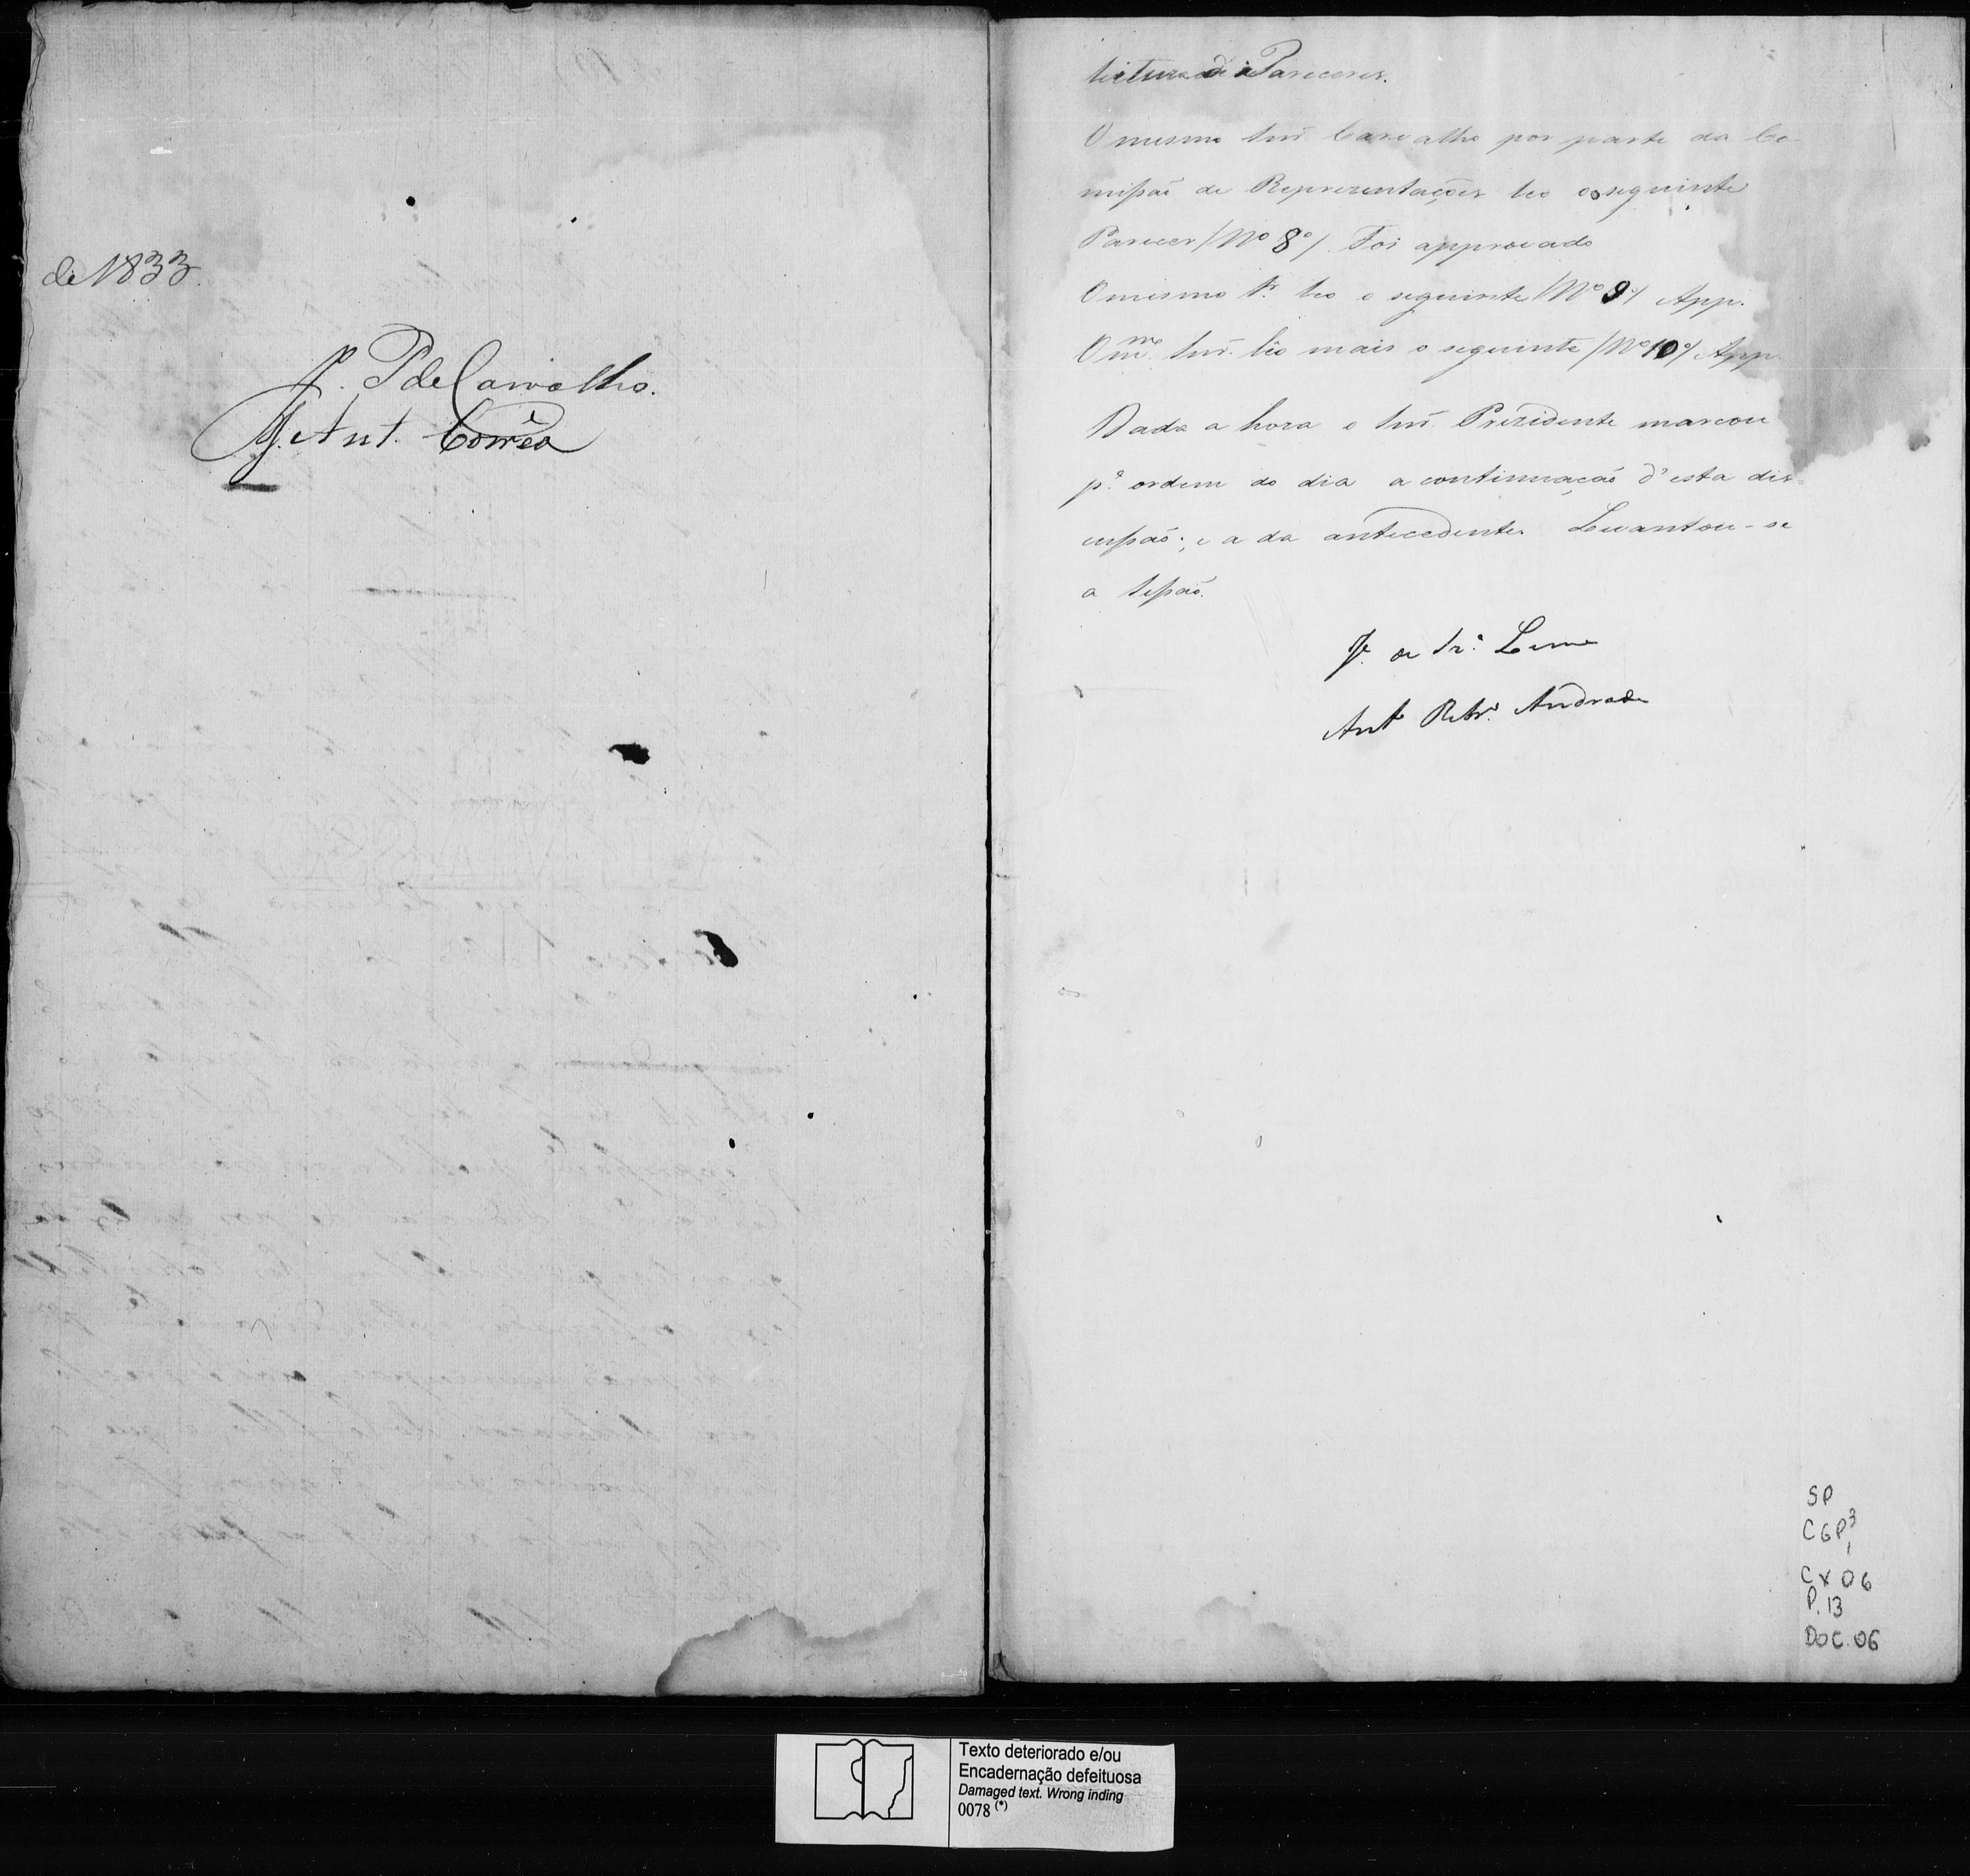 de 1833.
J. P. de Carvalho.
M. Ant. Corrêa
leitura de Pareceres.
O mesmo Snr. Carvalho por parte da Co-
missaõ de Reprezentações leo o seguinte
Parecer (Nº 8º). Foi approvado
O mesmo Sr. leo o seguinte (Nº 9º) App.
O mmo. Snr. lêo mais o seguinte (Nº 10º) App.
Dada a hora o Snr. Prezidente marcou
pª ordem do dia a continuaçaõ d'esta dis=
cussaõ; e a da antecedente. Levantou-se
a Sessaõ.
Leme
Antº Andrade
SP
CGP3
1
CX 06
P. 13
DOC. 06
Texto deteriorado e/ou
Encadernação defeituosa
Damaged text. Wrong inding
0078 (*)